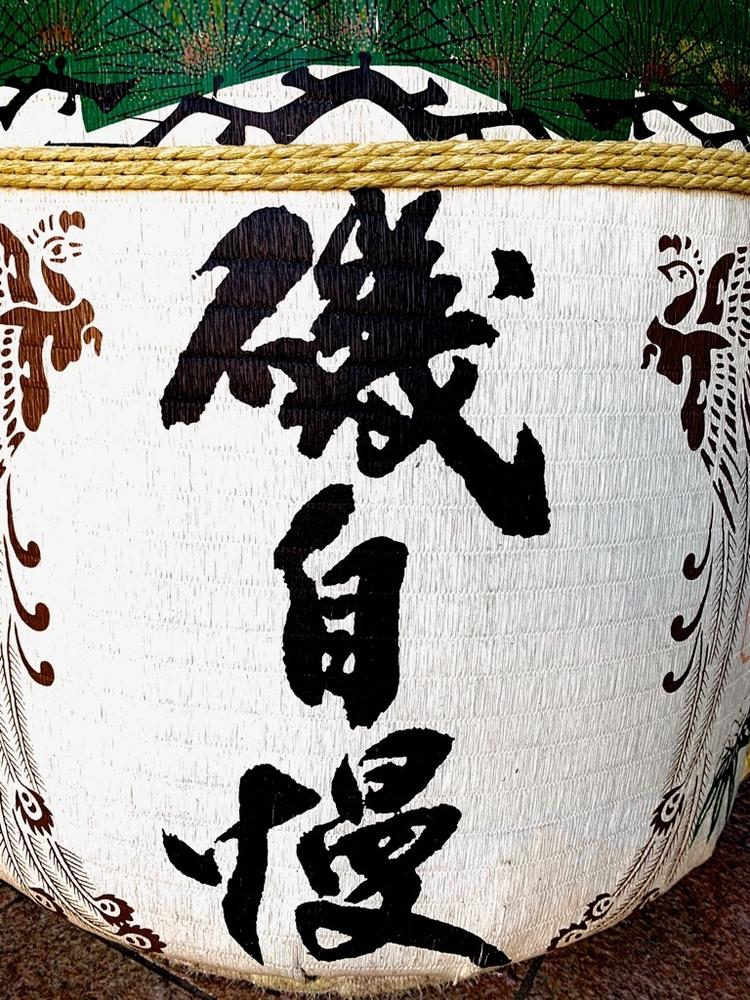 磯自慢